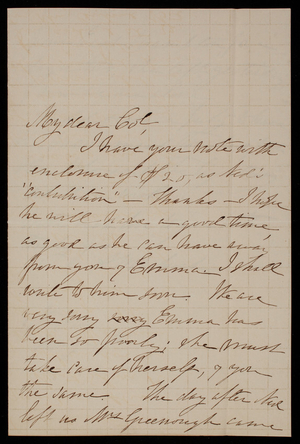 My dear Col
I have your note with
enclosure of $20, as Ned's
"contribution" – Thanks – I hope
he will have a good time,
as good as he can have away
from you & Emma. I shall
write to him soon. We are
very sorry Emma has
been so poorly; she must
take care of herself, & you
the same. The day after Ned
left us Mrs Greenough came